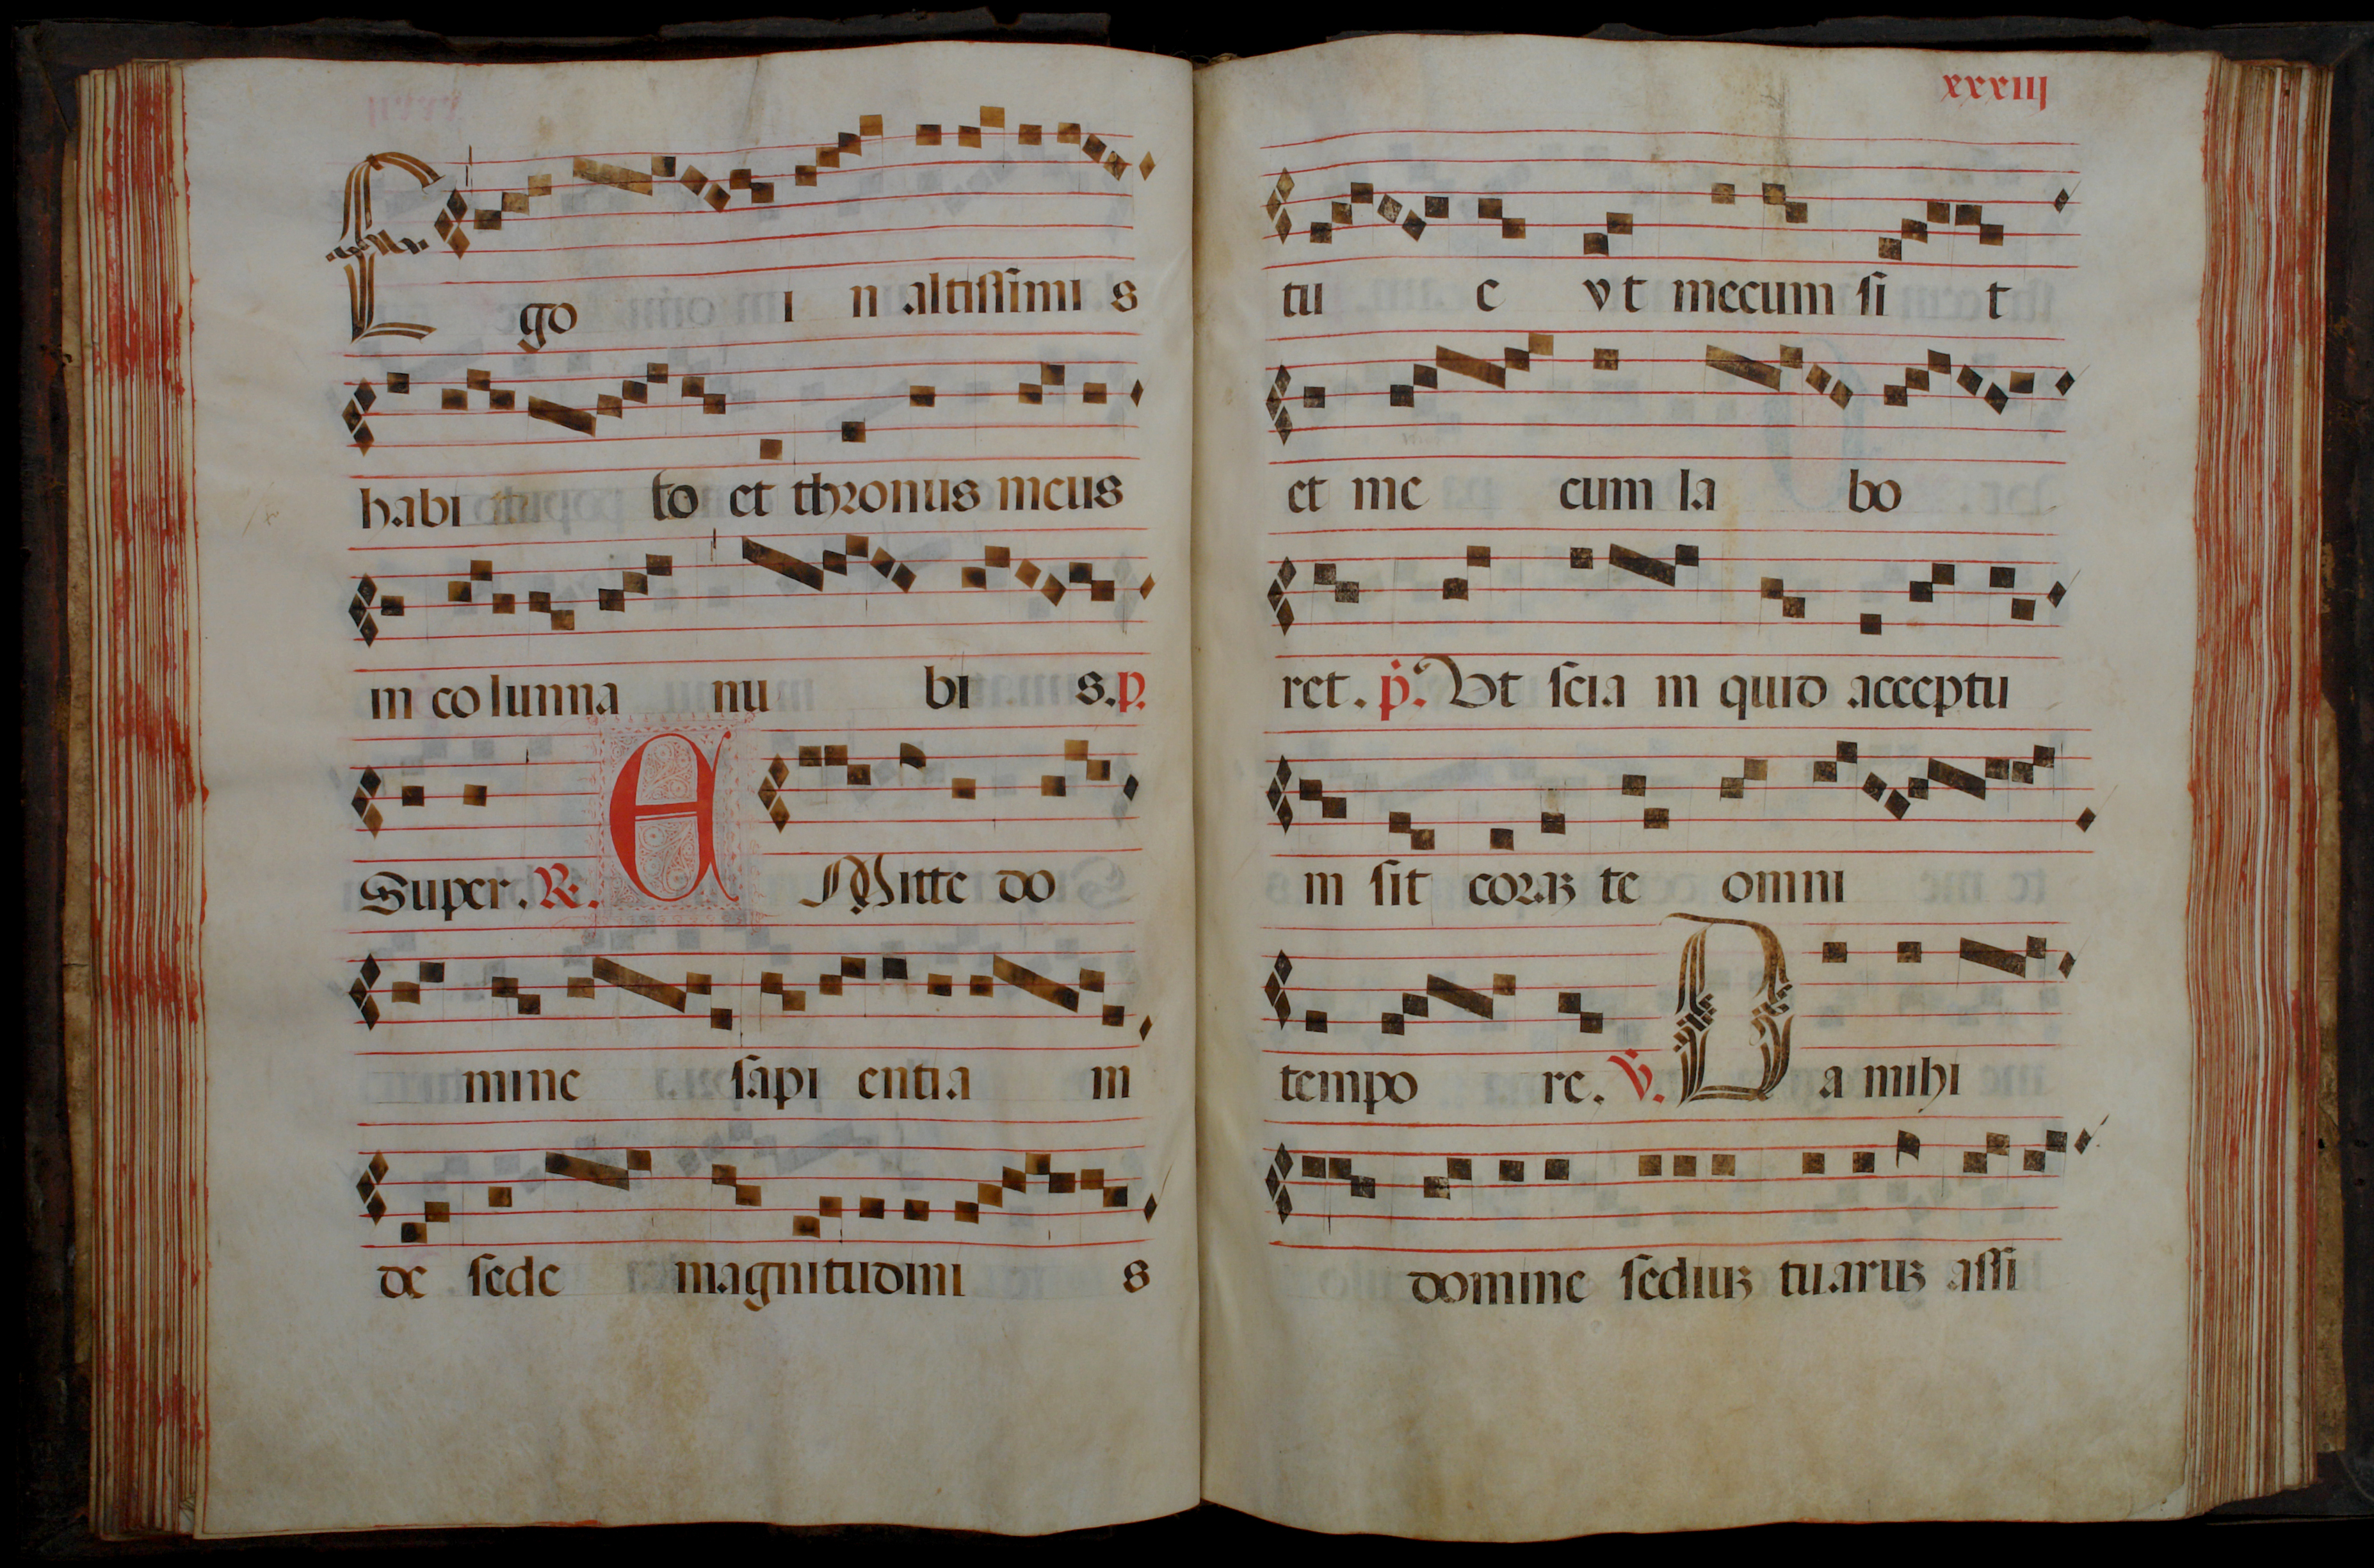 Ego i n altissimi s
habi to et thronus meus
in columna nu bi s. p.
Super. R. E Mitte do
mine sapi entia m
de sede magnitudini s
xxxiij
tu e vt mecum si t
et me cum la bo
ret. p. Vt scia m quid acceptu
m sit coraʒ te omni
tempo re. V. Da mihi
domine sediuʒ tuaruʒ assi